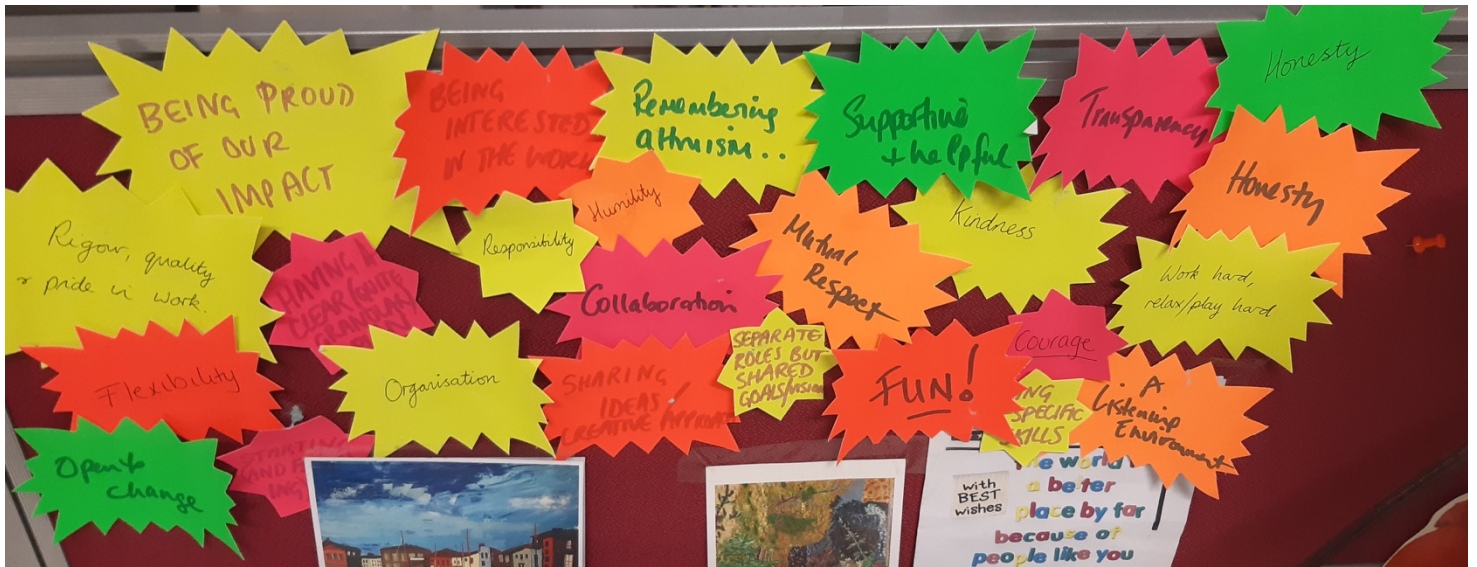 BEING PROUD
OF OUR
IMPACT
BEING
INTERESTED
IN THE WORK
Remembering
altruism..
Supportive
+ helpful
Transparency
Honesty
Rigour, quality
& pride in work.
HAVING A
CLEAR
Responsibility
Humility
Collaboration
Mutual
Respect
Kindness
Honesty
Work hard,
relax/play hard
Flexibility
Organisation
SHARING
IDEAS
CREATIVE
SEPARATE
ROLES BUT
SHARED
GOALS/VISION
FUN!
Courage
SPECIFIC
SKILLS
A
Listening
Environment
Open to
change
with
BEST
wishes
world
a better
place by far
because of
people like you